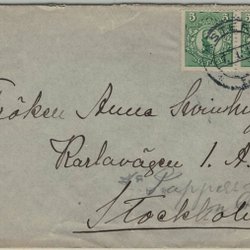 5 5
STE
röken Anna Svinhu
Karlavägen 1. A
Kappels
Stockhol